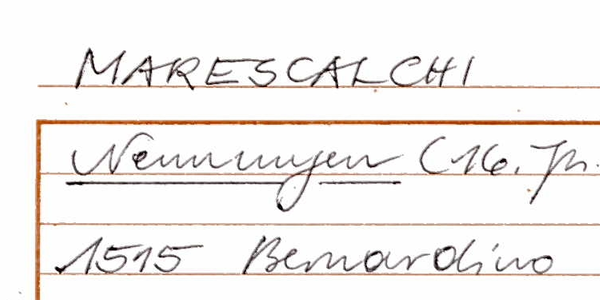 MARESCALCHI
Nennungen (16. Jh.
1515 Bernardino